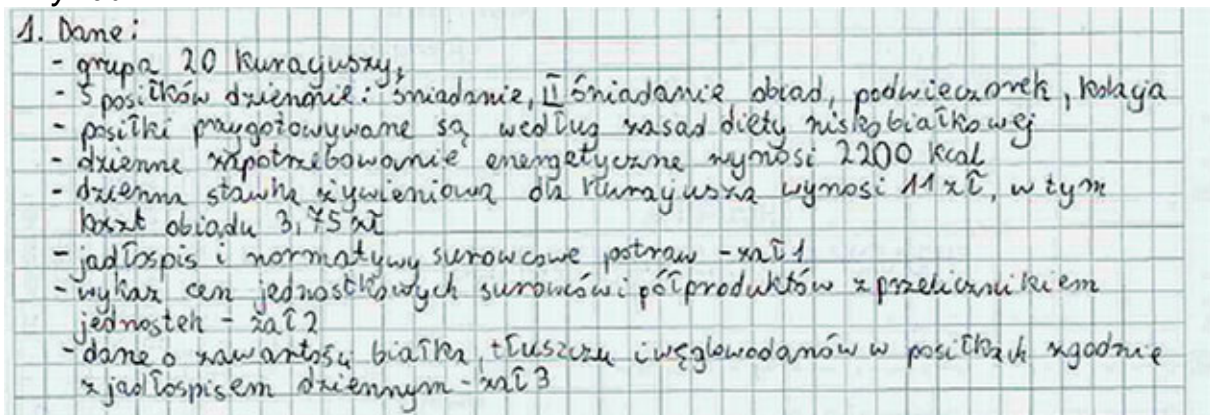 1. Dane:
- grupa 20 kuracjuszy,
- 5 posiłków dziennie: śniadanie, II śniadanie obiad, podwieczorek, kolacja
- posiłki przygotowywane są według zasad diety niskobiałkowej
- dzienne zapotrzebowanie energetyczne wynosi 2200 kcal
- dzienna stawka żywieniowa dla kuracjusza wynosi 11 zł, w tym
koszt obiadu 3,75 zł
- jadłospis i normatywy surowcowe potraw - zał 1
- wykaz cen jednostkowych surowców i półproduktów z przelicznikiem
jednostek - zał 2
- dane o zawartości białka, tłuszczu i węglowodanów w posiłkach zgodnie
z jadłospisem dziennym - zał 3